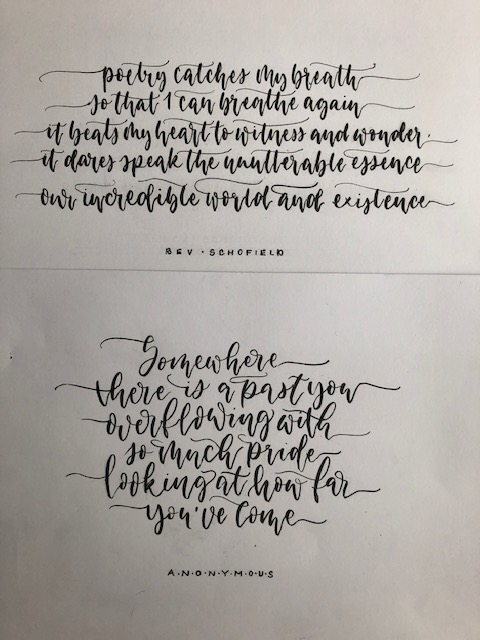 poetry catches my breath
so that I can breathe again
it beats my heart to witness and wonder.
it dares speak the unutterable essence
our incredible world and existence
BEV · SCHOFIELD
Somewhere
there is a past you
overflowing with
so much pride
looking at how far
you've come
A·N·O·N·Y·M·O·U·S